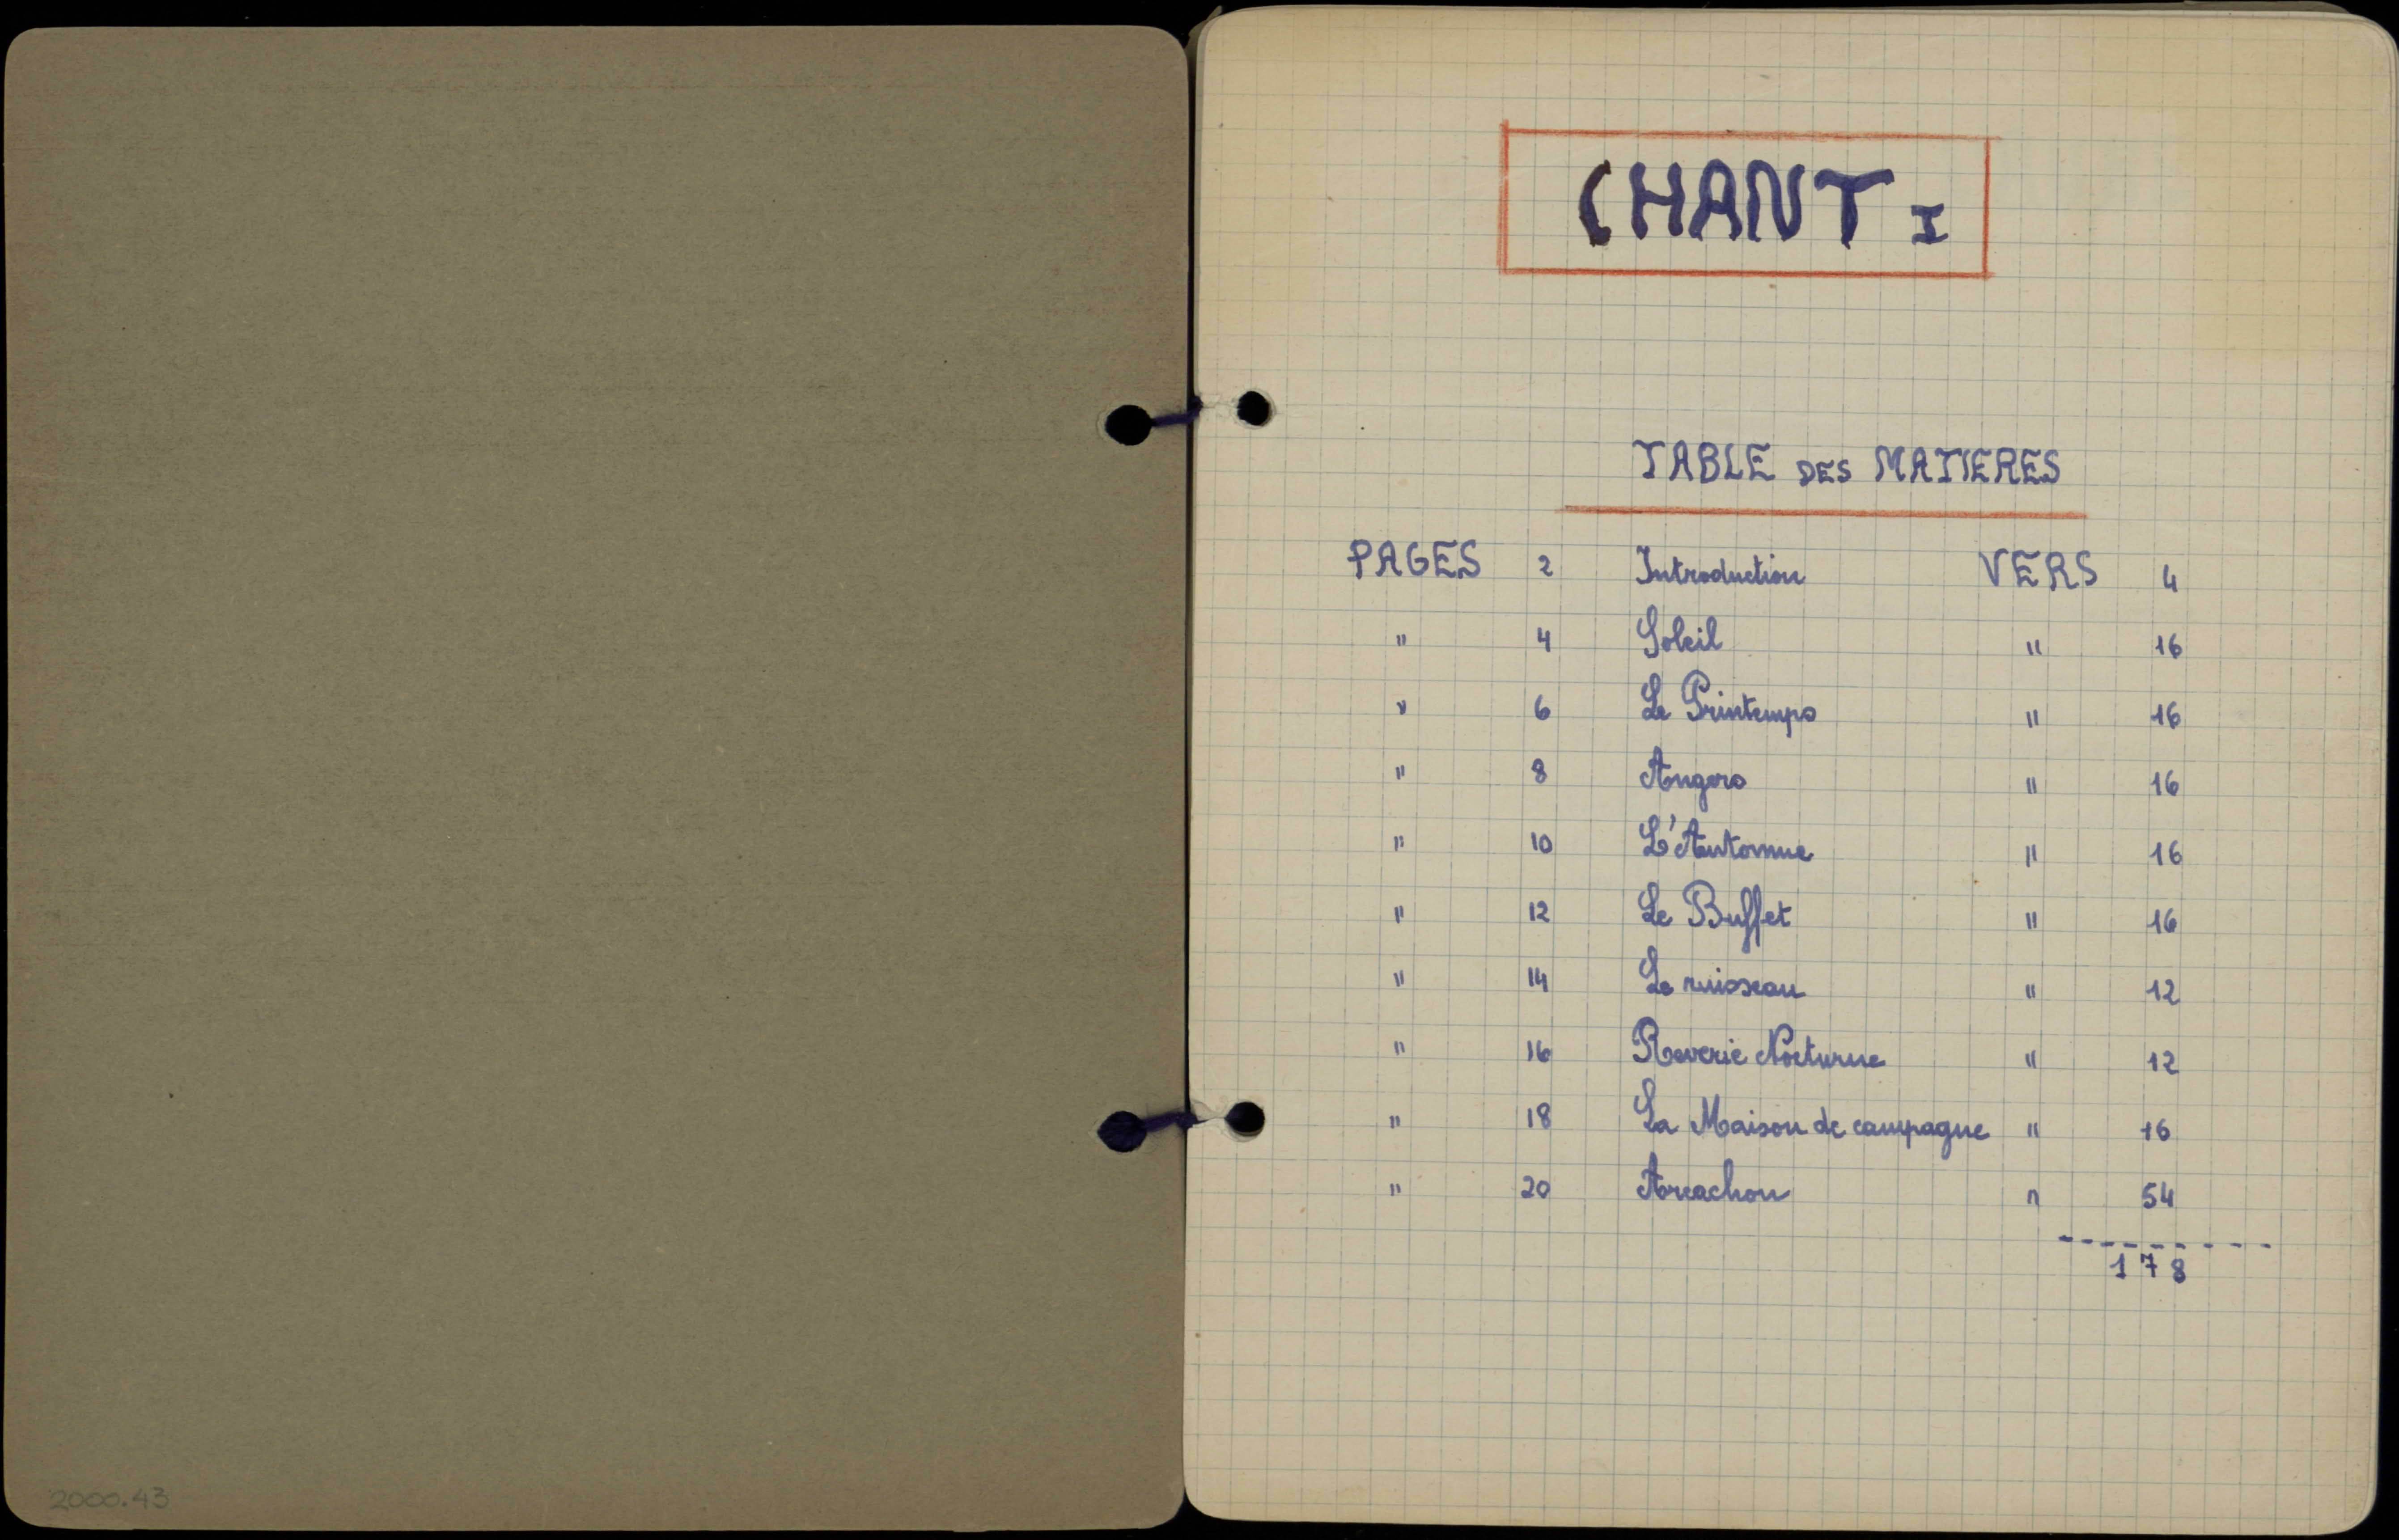 2000.43
CHANT I
TABLE DES MATIERES
PAGES 2 Introduction VERS 4
" 4 Soleil " 16
" 6 Le Printemps " 16
" 8 Angers " 16
" 10 L'Automne " 16
" 12 Le Buffet " 16
" 14 Le ruisseau " 12
" 16 Reverie Nocturne " 12
" 18 La Maison de campagne " 16
" 20 Arcachon " 54
178